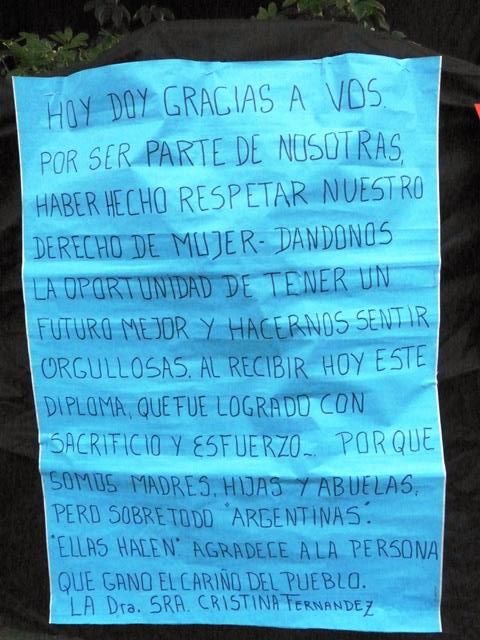 HOY DOY GRACIAS A VOS.
POR SER PARTE DE NOSOTRAS,
HABER HECHO RESPETAR NUESTRO
DERECHO DE MUJER- DANDONOS
LA OPORTUNIDAD DE TENER UN
FUTURO MEJOR Y HACERNOS SENTIR
ORGULLOSAS. AL RECIBIR HOY ESTE
DIPLOMA, QUE FUE LOGRADO CON
SACRIFICIO Y ESFUERZO... PORQUE
SOMOS MADRES, HIJAS Y ABUELAS,
PERO SOBRETODO "ARGENTINAS".
"ELLAS HACEN" AGRADECE A LA PERSONA
QUE GANO EL CARIÑO DEL PUEBLO.
LA Dra. SRA. CRISTINA FERNANDEZ